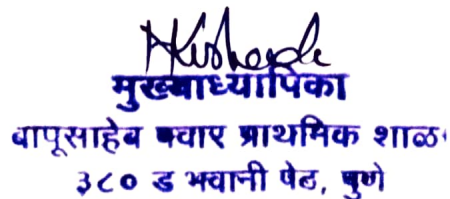 मुख्याध्यापिका
बापूसाहेब पवार प्राथमिक शाळा
३८० ड भवानी पेठ, पुणे